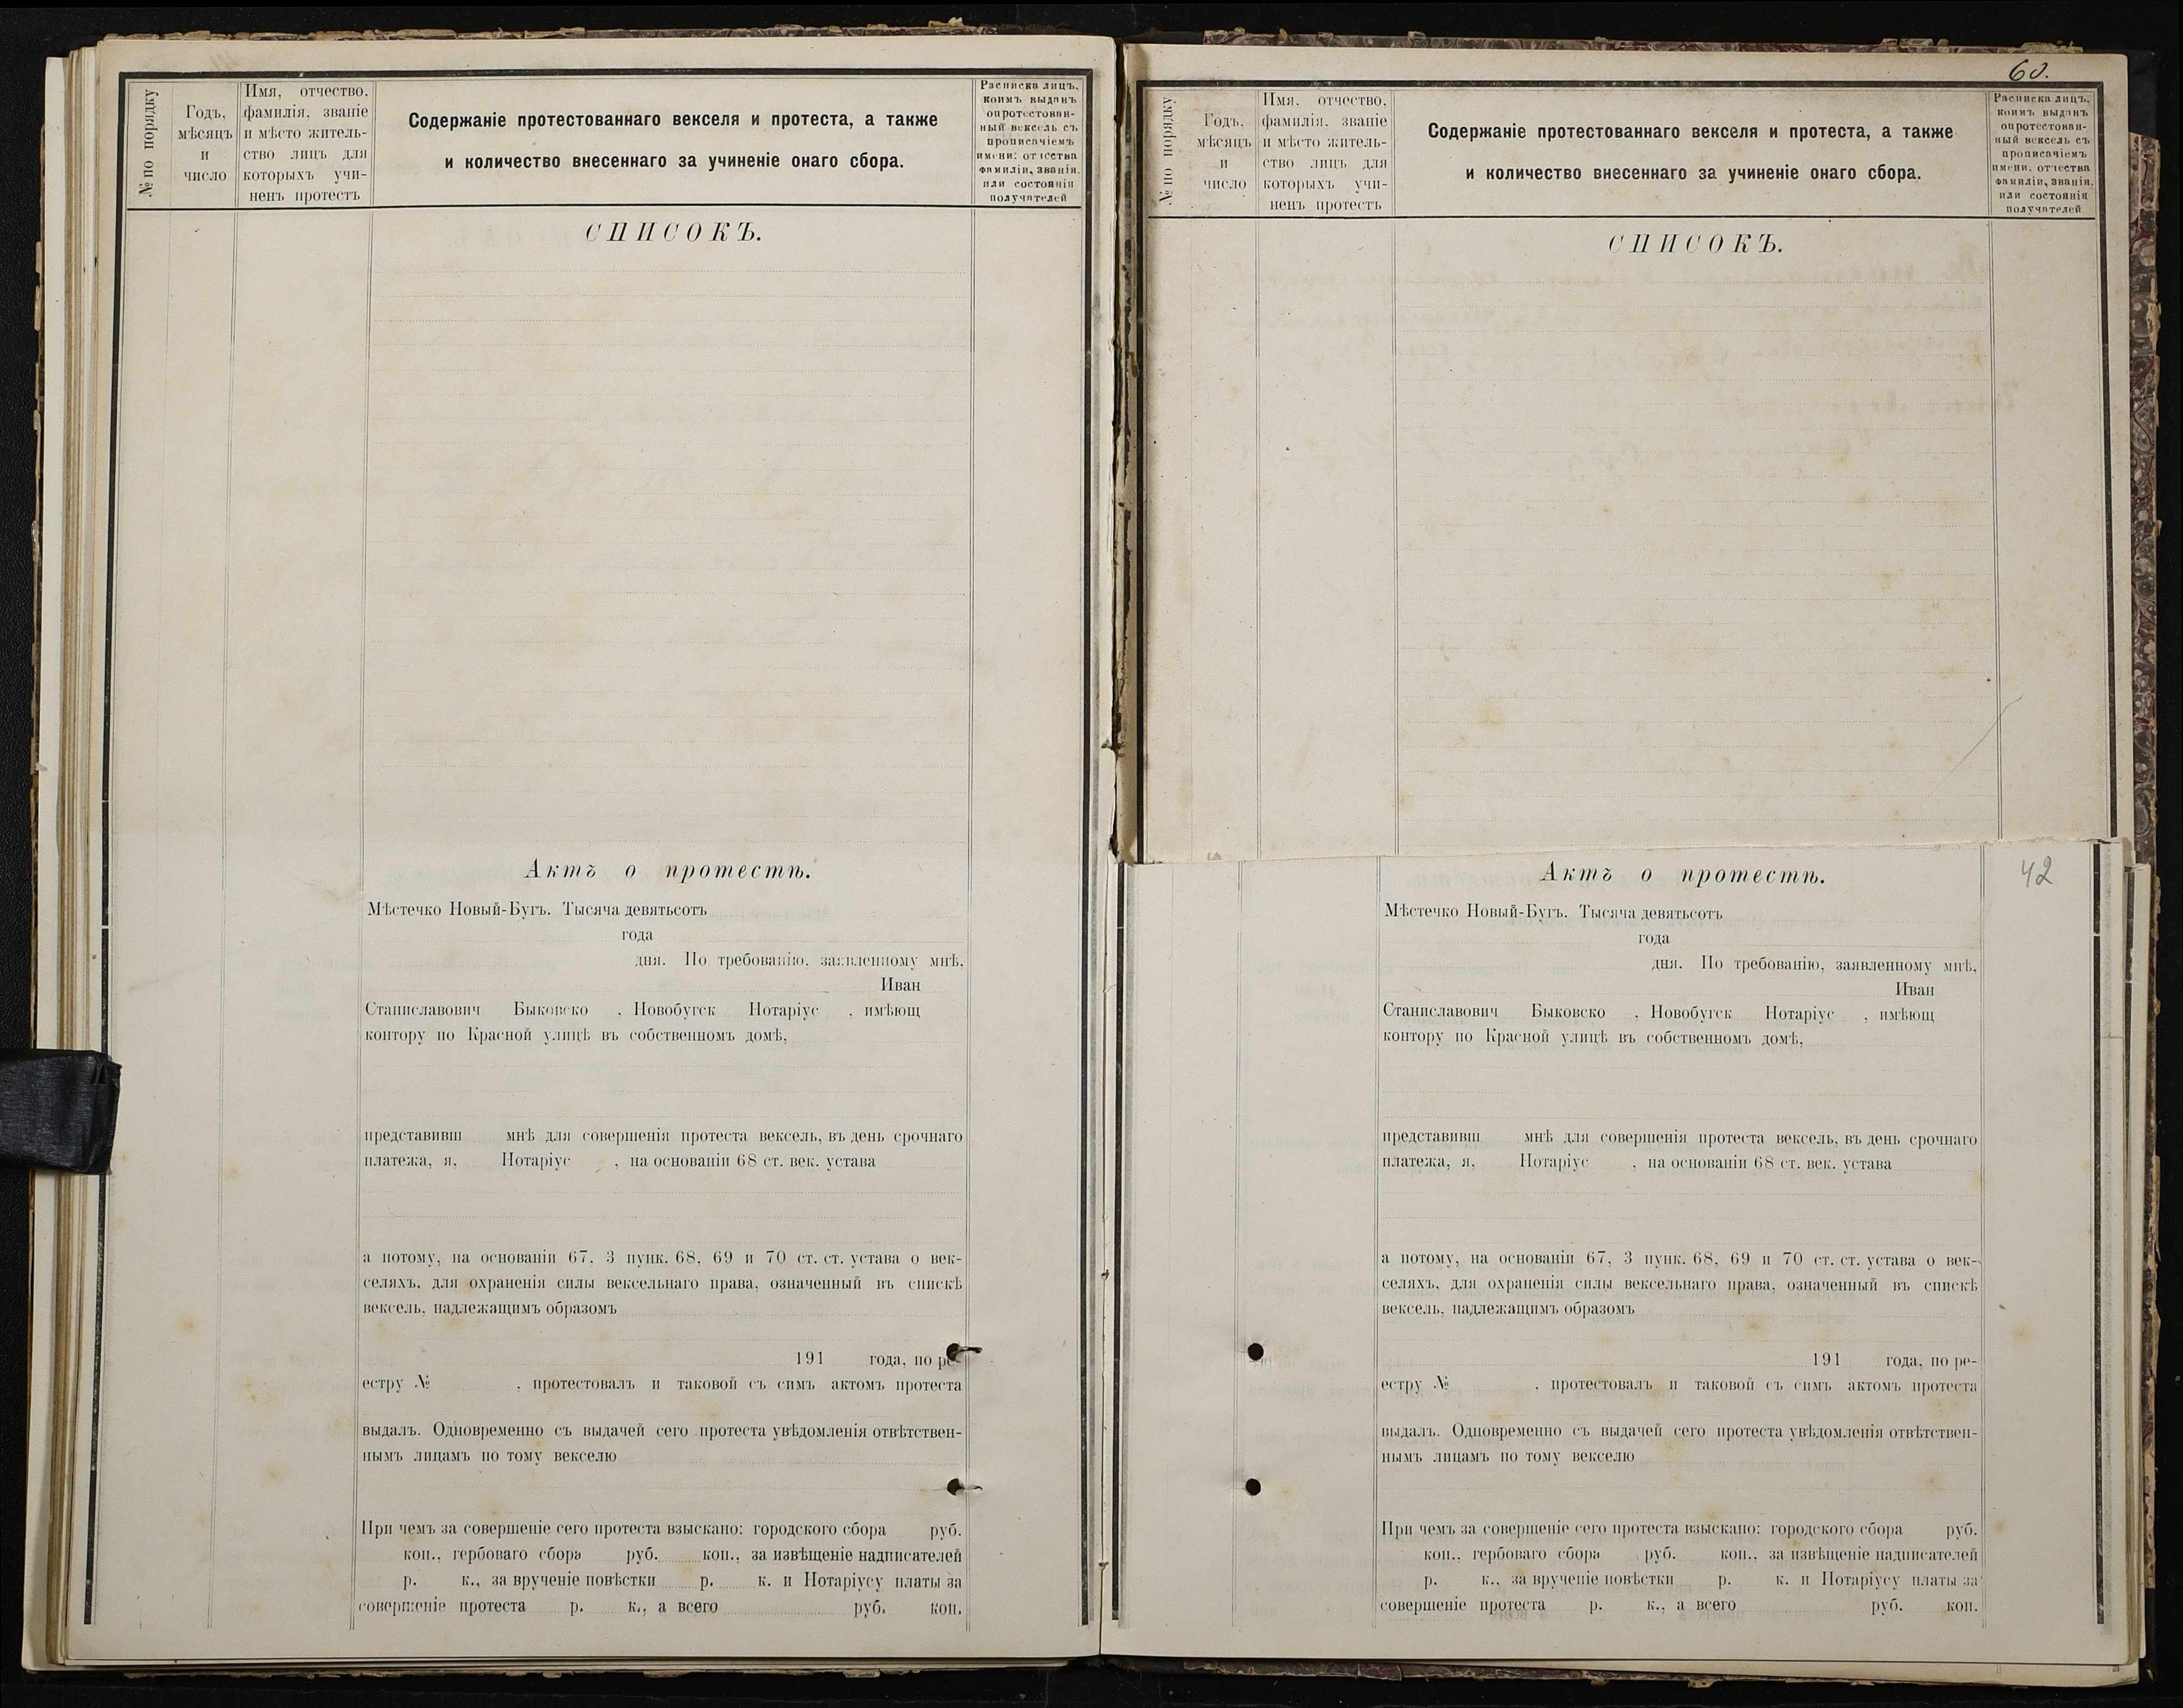 № по порядку
Годъ,
мѣсяцъ
и
число
Имя, отчество,
фамилія, званіе
и мѣсто житель-
ство лицъ для
которыхъ учи-
ненъ протестъ
Содержаніе протестованнаго векселя и протеста, а также
и количество внесеннаго за учиненіе онаго сбора.
Расписка лицъ,
коимъ выданъ
опротестован-
ный вексель съ
прописаніемъ
имени, отчества
фамиліи, званія,
или состоянія
получателей
СПИСОКЪ.
Актъ о протестѣ.
Мѣстечко Новый-Бугъ. Тысяча девятьсотъ
года
дня. По требованію, заявленному мнѣ,
Иван
Станиславович Быковско , Новобугск Нотаріус , имѣющ
контору по Красной улицѣ въ собственномъ домѣ,
представивш мнѣ для совершенія протеста вексель, въ день срочнаго
платежа, я, Нотаріус , на основаніи 68 ст. век. устава
а потому, на основаніи 67, 3 пунк. 68, 69 и 70 ст. ст. устава о век-
селяхъ, для охраненія силы вексельнаго права, означенный въ спискѣ
вексель, надлежащимъ образомъ
191 года, по ре-
естру № , протестовалъ и таковой съ симъ актомъ протеста
выдалъ. Одновременно съ выдачей сего протеста увѣдомленія отвѣтствен-
нымъ лицамъ по тому векселю
При чемъ за совершеніе сего протеста взыскано: городского сбора руб.
коп., гербоваго сбора руб. коп., за извѣщеніе надписателей
р. к., за врученіе повѣстки р. к. и Нотаріусу платы за
совершеніе протеста р. к., а всего руб. коп.
60.
№ по порядку
Годъ,
мѣсяцъ
и
число
Имя, отчество,
фамилія, званіе
и мѣсто житель-
ство лицъ для
которыхъ учи-
ненъ протестъ
Содержаніе протестованнаго векселя и протеста, а также
и количество внесеннаго за учиненіе онаго сбора.
Расписка лицъ,
коимъ выданъ
опротестован-
ный вексель съ
прописаніемъ
имени, отчества
фамиліи, званія,
или состоянія
получателей
СПИСОКЪ.
42
Актъ о протестѣ.
Мѣстечко Новый-Бугъ. Тысяча девятьсотъ
года
дня. По требованію, заявленному мнѣ,
Иван
Станиславович Быковско , Новобугск Нотаріус , имѣющ
контору по Красной улицѣ въ собственномъ домѣ,
представивш мнѣ для совершенія протеста вексель, въ день срочнаго
платежа, я, Нотаріус , на основаніи 68 ст. век. устава
а потому, на основаніи 67, 3 пунк. 68, 69 и 70 ст. ст. устава о век-
селяхъ, для охраненія силы вексельнаго права, означенный въ спискѣ
вексель, надлежащимъ образомъ
191 года, по ре-
естру № , протестовалъ и таковой съ симъ актомъ протеста
выдалъ. Одновременно съ выдачей сего протеста увѣдомленія отвѣтствен-
нымъ лицамъ по тому векселю
При чемъ за совершеніе сего протеста взыскано: городского сбора руб.
коп., гербоваго сбора руб. коп., за извѣщеніе надписателей
р. к., за врученіе повѣстки р. к. и Нотаріусу платы за
совершеніе протеста р. к., а всего руб. коп.